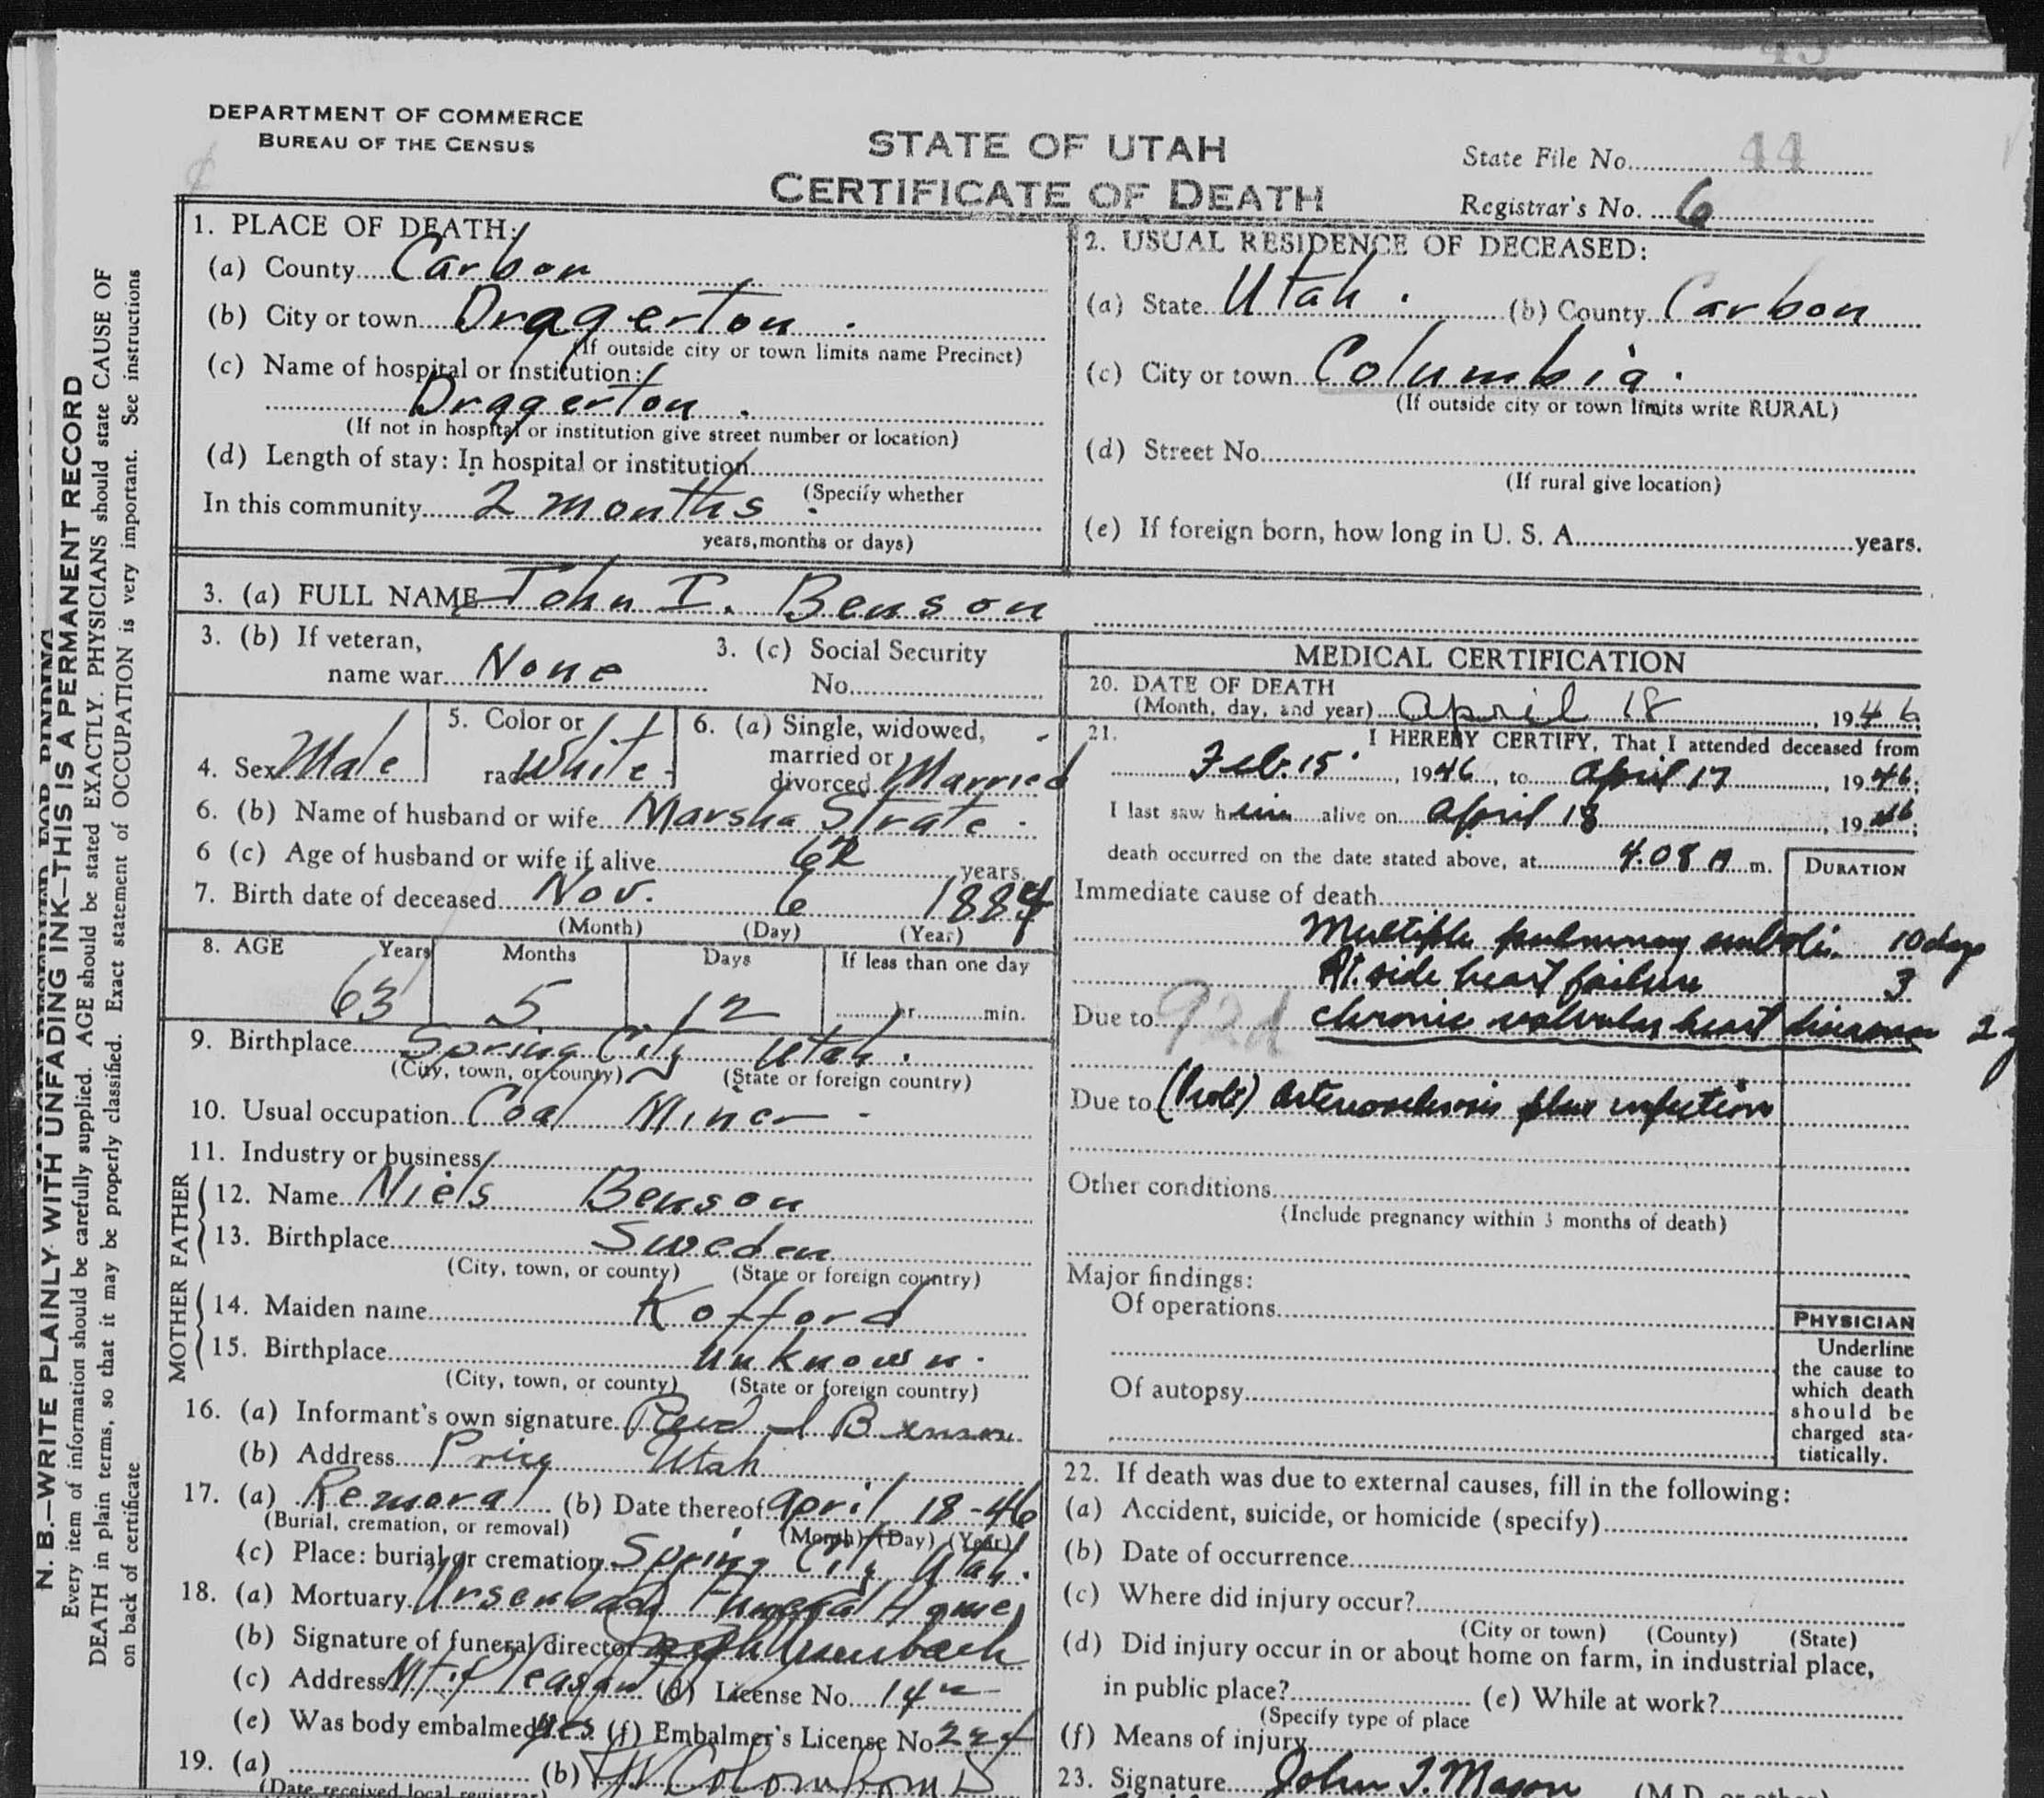 43
DEPARTMENT OF COMMERCE
BUREAU OF THE CENSUS
STATE OF UTAH
CERTIFICATE OF DEATH
State File No. 44
Registrar's No. 6
N. B.—WRITE PLAINLY WITH UNFADING INK—THIS IS A PERMANENT RECORD
Every item of information should be carefully supplied. AGE should be stated EXACTLY. PHYSICIANS should state CAUSE OF
DEATH in plain terms, so that it may be properly classified. Exact statement of OCCUPATION is very important. See instructions
on back of certificate
1. PLACE OF DEATH:
(a) County Carbon
(b) City or town Dragerton.
(If outside city or town limits name Precinct)
(c) Name of hospital or institution:
Dragerton.
(If not in hospital or institution give street number or location)
(d) Length of stay: In hospital or institution
(Specify whether
In this community 2 months.
years, months or days)
2. USUAL RESIDENCE OF DECEASED:
(a) State Utah. (b) County Carbon
(c) City or town Columbia.
(If outside city or town limits write RURAL)
(d) Street No.
(If rural give location)
(e) If foreign born, how long in U. S. A. years.
3. (a) FULL NAME John I. Benson
3. (b) If veteran,
name war None
3. (c) Social Security
No.
4. Sex Male
5. Color or
race White
6. (a) Single, widowed,
married or
divorced Married
6. (b) Name of husband or wife Marsha Strate
6 (c) Age of husband or wife if alive 62 years.
7. Birth date of deceased Nov. 6 1884
(Month) (Day) (Year)
8. AGE Years Months Days If less than one day
63 5 12 hr. min.
9. Birthplace Spring City Utah.
(City, town, or county) (State or foreign country)
10. Usual occupation Coal Miner
11. Industry or business
FATHER
12. Name Niels Benson
13. Birthplace Sweden
(City, town, or county) (State or foreign country)
MOTHER
14. Maiden name Kofford
15. Birthplace Unknown.
(City, town, or county) (State or foreign country)
16. (a) Informant's own signature Benson
(b) Address Price Utah
17. (a) Removal (b) Date thereof April 18-46
(Burial, cremation, or removal) (Month) (Day) (Year)
(c) Place: burial or cremation Spring City Utah.
18. (a) Mortuary Ursenbach Funeral Home
(b) Signature of funeral director Ursenbach
(c) Address Mt Pleasant (d) License No. 142
(e) Was body embalmed yes (f) Embalmer's License No. 224
19. (a) (b)
(Date received local registrar)
MEDICAL CERTIFICATION
20. DATE OF DEATH
(Month, day, and year) April 18, 1946
21. I HEREBY CERTIFY, That I attended deceased from
Feb. 15, 1946, to April 17, 1946;
I last saw him alive on April 18, 1946;
death occurred on the date stated above, at 4:08 A m.
DURATION
Immediate cause of death
Multiple pulmonary emboli. 10 days
Rt. side heart failure 3
Due to 92d chronic valvular heart disease 2 y
Due to (Prob) arteriosclerosis plus infection
Other conditions
(Include pregnancy within 3 months of death)
Major findings:
Of operations
Of autopsy
PHYSICIAN
Underline
the cause to
which death
should be
charged sta-
tistically.
22. If death was due to external causes, fill in the following:
(a) Accident, suicide, or homicide (specify)
(b) Date of occurrence
(c) Where did injury occur?
(City or town) (County) (State)
(d) Did injury occur in or about home on farm, in industrial place,
in public place? (e) While at work?
(Specify type of place
(f) Means of injury
23. Signature John T. Mason (M.D. or other)